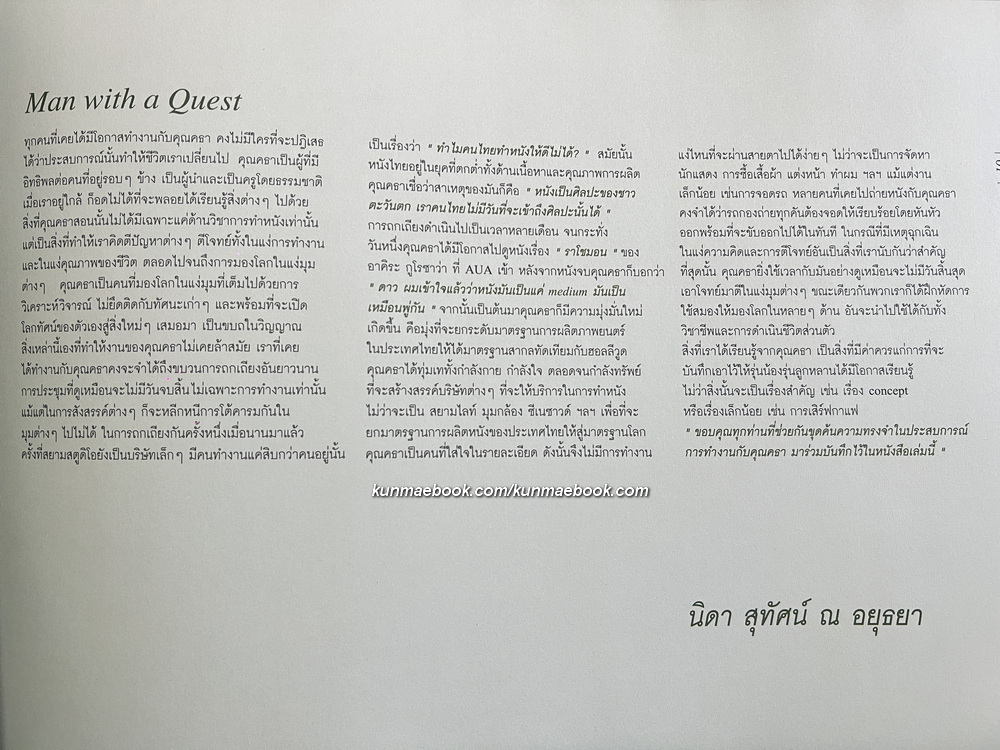 Man with a Quest
ทุกคนที่เคยได้มีโอกาสทำงานกับคุณคธา คงไม่มีใครที่จะปฏิเสธ
ได้ว่าประสบการณ์นั้นทำให้ชีวิตเราเปลี่ยนไป คุณคธาเป็นผู้ที่มี
อิทธิพลต่อคนที่อยู่รอบๆ ข้าง เป็นผู้นำและเป็นครูโดยธรรมชาติ
เมื่อเราอยู่ใกล้ ก็อดไม่ได้ที่จะพลอยได้เรียนรู้สิ่งต่างๆ ไปด้วย
สิ่งที่คุณคธาสอนนั้นไม่ได้มีเฉพาะแค่ด้านวิชาการทำหนังเท่านั้น
แต่เป็นสิ่งที่ทำให้เราคิดตีปัญหาต่างๆ ตีโจทย์ทั้งในแง่การทำงาน
และในแง่คุณภาพของชีวิต ตลอดไปจนถึงการมองโลกในแง่มุม
ต่างๆ คุณคธาเป็นคนที่มองโลกในแง่มุมที่เต็มไปด้วยการ
วิเคราะห์วิจารณ์ ไม่ยึดติดกับทัศนะเก่าๆ และพร้อมที่จะเปิด
โลกทัศน์ของตัวเองสู่สิ่งใหม่ๆ เสมอมา เป็นขบถในวิญญาณ
สิ่งเหล่านี้เองที่ทำให้งานของคุณคธาไม่เคยล้าสมัย เราที่เคย
ได้ทำงานกับคุณคธาคงจะจำได้ถึงขบวนการถกเถียงอันยาวนาน
การประชุมที่ดูเหมือนจะไม่มีวันจบสิ้น ไม่เฉพาะการทำงานเท่านั้น
แม้แต่ในการสังสรรค์ต่างๆ ก็จะหลีกหนีการโต้คารมกันใน
มุมต่างๆ ไปไม่ได้ ในการถกเถียงกันครั้งหนึ่งเมื่อนานมาแล้ว
ครั้งที่สยามสตูดิโอยังเป็นบริษัทเล็กๆ มีคนทำงานแค่สิบกว่าคนอยู่นั้น
เป็นเรื่องว่า " ทำไมคนไทยทำหนังให้ดีไม่ได้? " สมัยนั้น
หนังไทยอยู่ในยุคที่ตกต่ำทั้งด้านเนื้อหาและคุณภาพการผลิต
คุณคธาเชื่อว่าสาเหตุของมันก็คือ " หนังเป็นศิลปะของชาว
ตะวันตก เราคนไทยไม่มีวันที่จะเข้าถึงศิลปะนั้นได้ "
การถกเถียงดำเนินไปเป็นเวลาหลายเดือน จนกระทั่ง
วันหนึ่งคุณคธาได้มีโอกาสไปดูหนังเรื่อง " ราโชมอน " ของ
อาคิระ กูโรซาว่า ที่ AUA เข้า หลังจากหนังจบคุณคธาก็บอกว่า
" ดาว ผมเข้าใจแล้วว่าหนังมันเป็นแค่ medium มันเป็น
เหมือนพู่กัน " จากนั้นเป็นต้นมาคุณคธาก็มีความมุ่งมั่นใหม่
เกิดขึ้น คือมุ่งที่จะยกระดับมาตรฐานการผลิตภาพยนตร์
ในประเทศไทยให้ได้มาตรฐานสากลทัดเทียมกับฮอลลีวูด
คุณคธาได้ทุ่มเททั้งกำลังกาย กำลังใจ ตลอดจนกำลังทรัพย์
ที่จะสร้างสรรค์บริษัทต่างๆ ที่จะให้บริการในการทำหนัง
ไม่ว่าจะเป็น สยามไลท์ มุมกล้อง ซีเนซาวด์ ฯลฯ เพื่อที่จะ
ยกมาตรฐานการผลิตหนังของประเทศไทยให้สู่มาตรฐานโลก
คุณคธาเป็นคนที่ใส่ใจในรายละเอียด ดังนั้นจึงไม่มีการทำงาน
แง่ไหนที่จะผ่านสายตาไปได้ง่ายๆ ไม่ว่าจะเป็นการจัดหา
นักแสดง การซื้อเสื้อผ้า แต่งหน้า ทำผม ฯลฯ แม้แต่งาน
เล็กน้อย เช่นการจอดรถ หลายคนที่เคยไปถ่ายหนังกับคุณคธา
คงจำได้ว่ารถกองถ่ายทุกคันต้องจอดให้เรียบร้อยโดยหันหัว
ออกพร้อมที่จะขับออกไปได้ในทันที ในกรณีที่มีเหตุฉุกเฉิน
ในแง่ความคิดและการตีโจทย์อันเป็นสิ่งที่เรานับกันว่าสำคัญ
ที่สุดนั้น คุณคธายิ่งใช้เวลากับมันอย่างดูเหมือนจะไม่มีวันสิ้นสุด
เอาโจทย์มาตีในแง่มุมต่างๆ ขณะเดียวกันพวกเราก็ได้ฝึกหัดการ
ใช้สมองให้มองโลกในหลายๆ ด้าน อันจะนำไปใช้ได้กับทั้ง
วิชาชีพและการดำเนินชีวิตส่วนตัว
สิ่งที่เราได้เรียนรู้จากคุณคธา เป็นสิ่งที่มีค่าควรแก่การที่จะ
บันทึกเอาไว้ให้รุ่นน้องรุ่นลูกหลานได้มีโอกาสเรียนรู้
ไม่ว่าสิ่งนั้นจะเป็นเรื่องสำคัญ เช่น เรื่อง concept
หรือเรื่องเล็กน้อย เช่น การเสิร์ฟกาแฟ
" ขอบคุณทุกท่านที่ช่วยกันขุดค้นความทรงจำในประสบการณ์
การทำงานกับคุณคธา มาร่วมบันทึกไว้ในหนังสือเล่มนี้ "
kunmaebook.com/kunmaebook.com
นิดา สุทัศน์ ณ อยุธยา